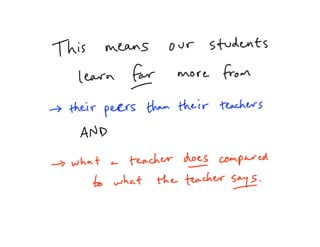 This means our students
learn far more from
→ their peers than their teachers
AND
→ what a teacher does compared
to what the teacher says.